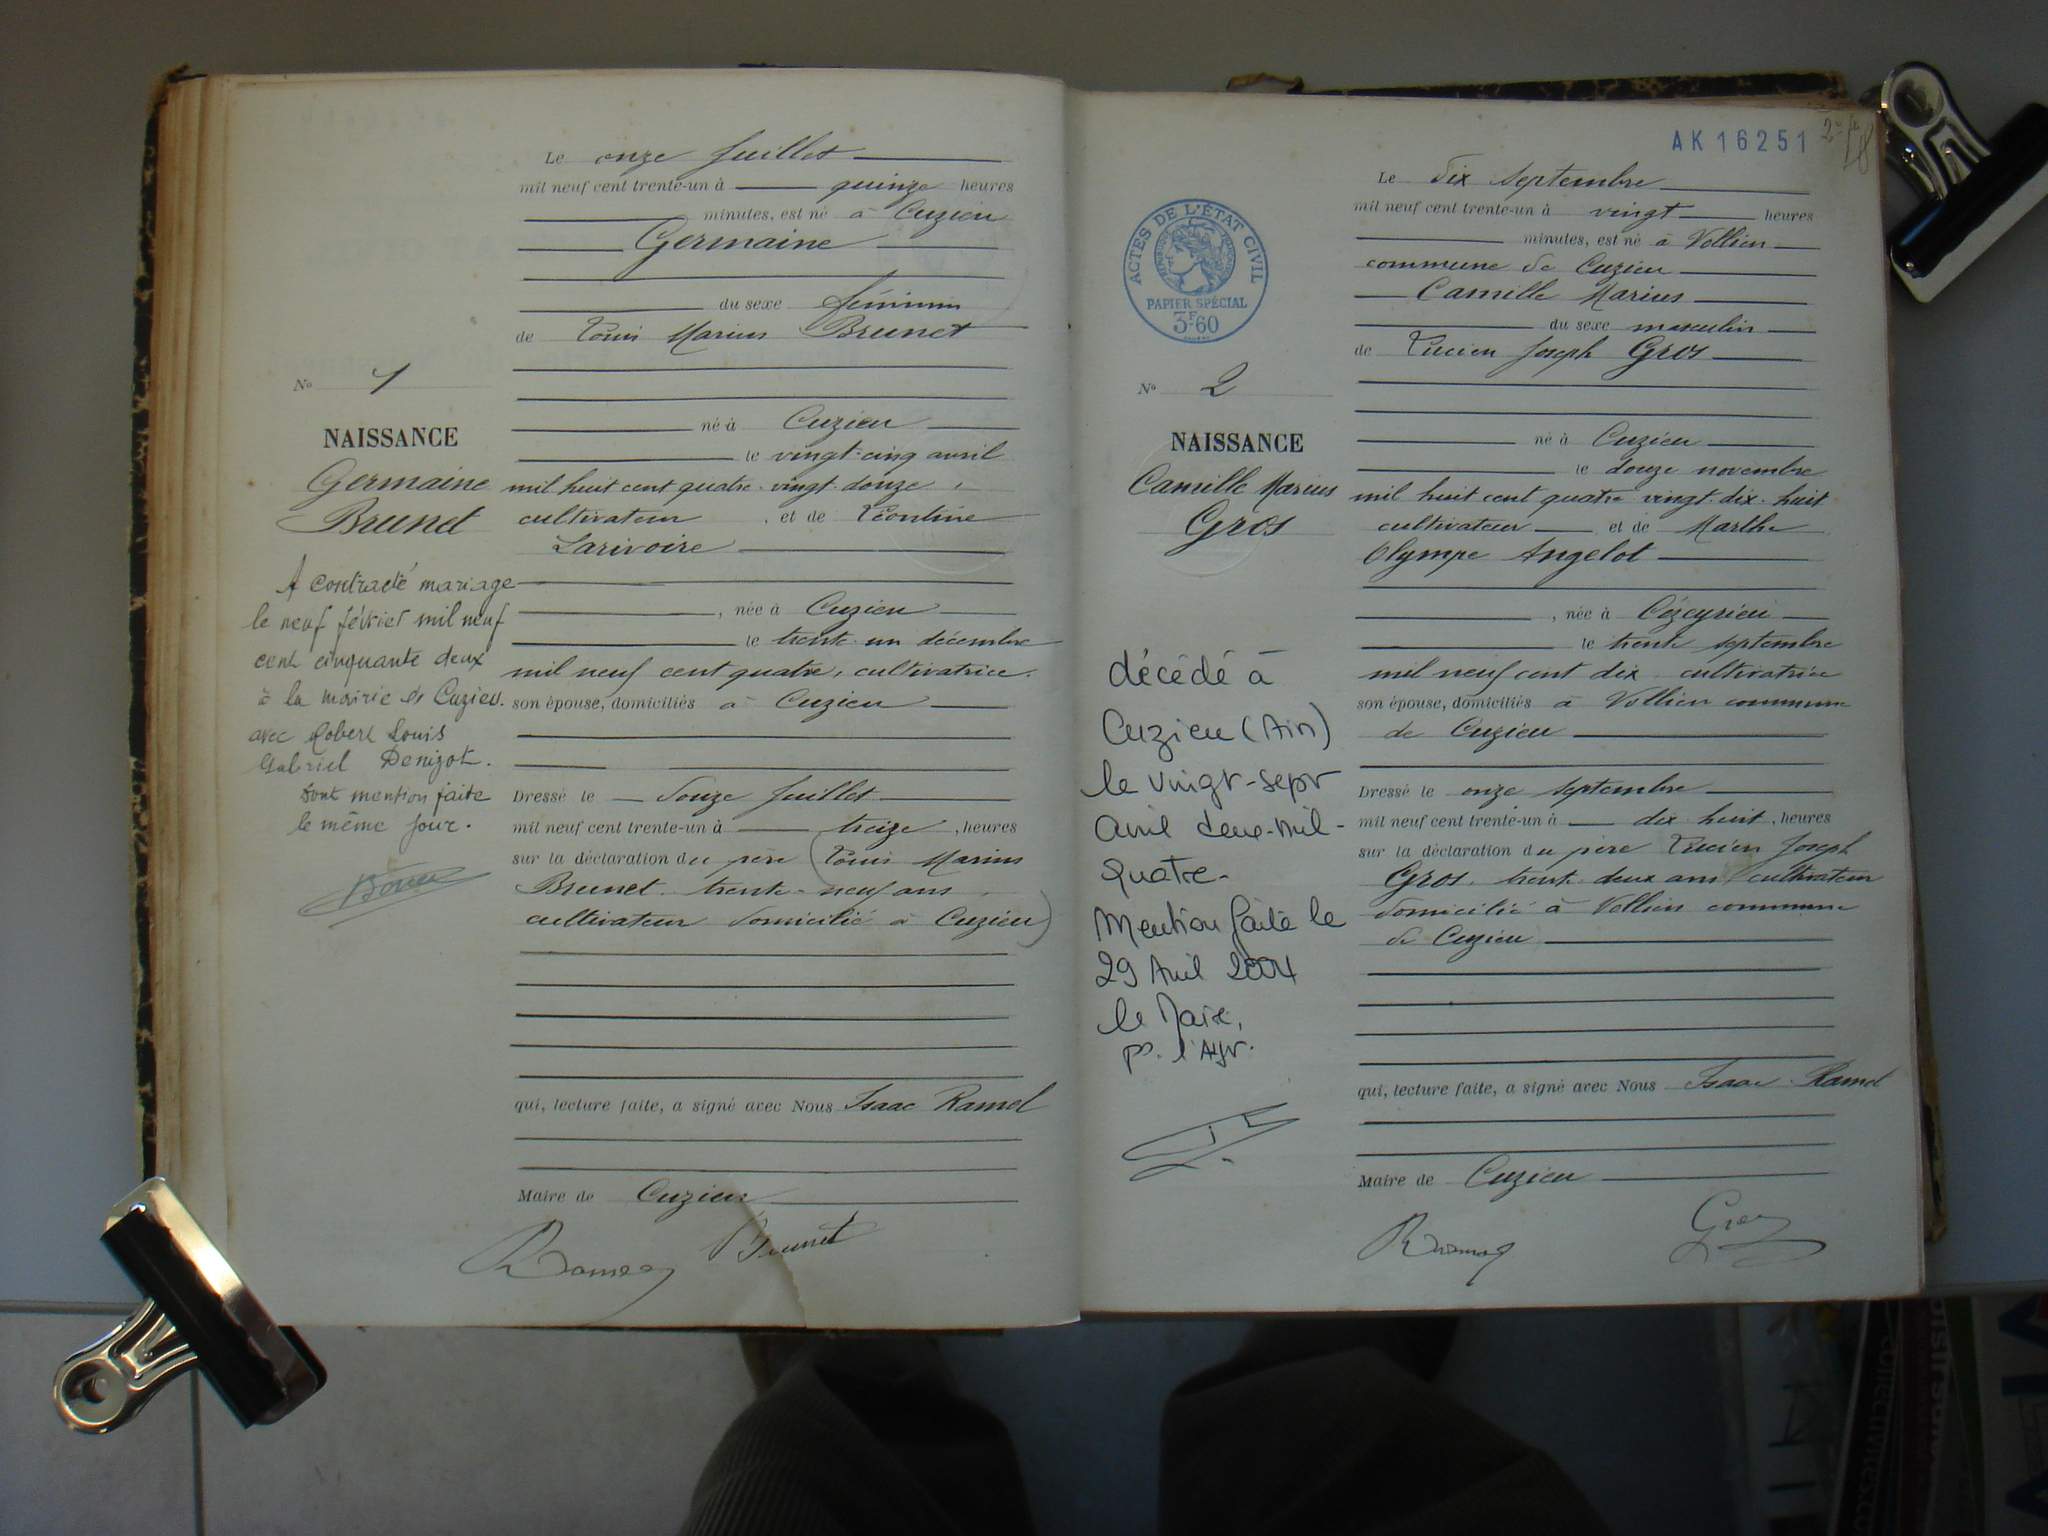 Le onze Juillet
mil neuf cent trente-un à quinze heures
minutes, est né à Cuzieu
Germaine
du sexe féminin
de Louis Marius Brunet
né à Cuzieu
le vingt-cinq avril
mil huit cent quatre-vingt-douze,
cultivateur, et de Léontine
Larivoire
, née à Cuzieu
le trente-un décembre
mil neuf cent quatre, cultivatrice.
son épouse, domiciliés à Cuzieu
Dressé le douze Juillet
mil neuf cent trente-un à treize, heures
sur la déclaration du père (Louis Marius
Brunet trente-neuf ans,
cultivateur domicilié à Cuzieu)
qui, lecture faite, a signé avec Nous Isaac Ramel
Maire de Cuzieu
Brunet
No 1
NAISSANCE
Germaine
Brunet
A contracté mariage
le neuf février mil neuf
cent cinquante deux
à la mairie de Cuzieu.
avec Robert Louis
Gabriel Denizot.
Dont mention faite
le même jour.
AK16251
Le Dix Septembre
mil neuf cent trente-un à vingt heures
minutes, est né à Vollien
commune de Cuzieu
Camille Marius
du sexe masculin
de Lucien Joseph Gros
né à Cuzieu
le douze novembre
mil huit cent quatre vingt-dix-huit
cultivateur et de Marthe
Olympe Angelot
, née à Cézeyrieu
le trente septembre
mil neuf cent dix cultivatrice
son épouse, domiciliés à Vollien commune
de Cuzieu
Dressé le onze septembre
mil neuf cent trente-un à dix huit, heures
sur la déclaration du père Lucien Joseph
Gros, trente-deux ans, cultivateur
domicilié à Vollien commune
de Cuzieu
qui, lecture faite, a signé avec Nous Isaac Ramel
Maire de Cuzieu
ACTES DE L'ÉTAT CIVIL
PAPIER SPÉCIAL
3F60
No 2
NAISSANCE
Camille Marius
Gros
décédé à
Cuzieu (Ain)
le vingt-sept
avril deux-mil-
quatre-
Mention faite le
29 Avril 2004
le Maire,